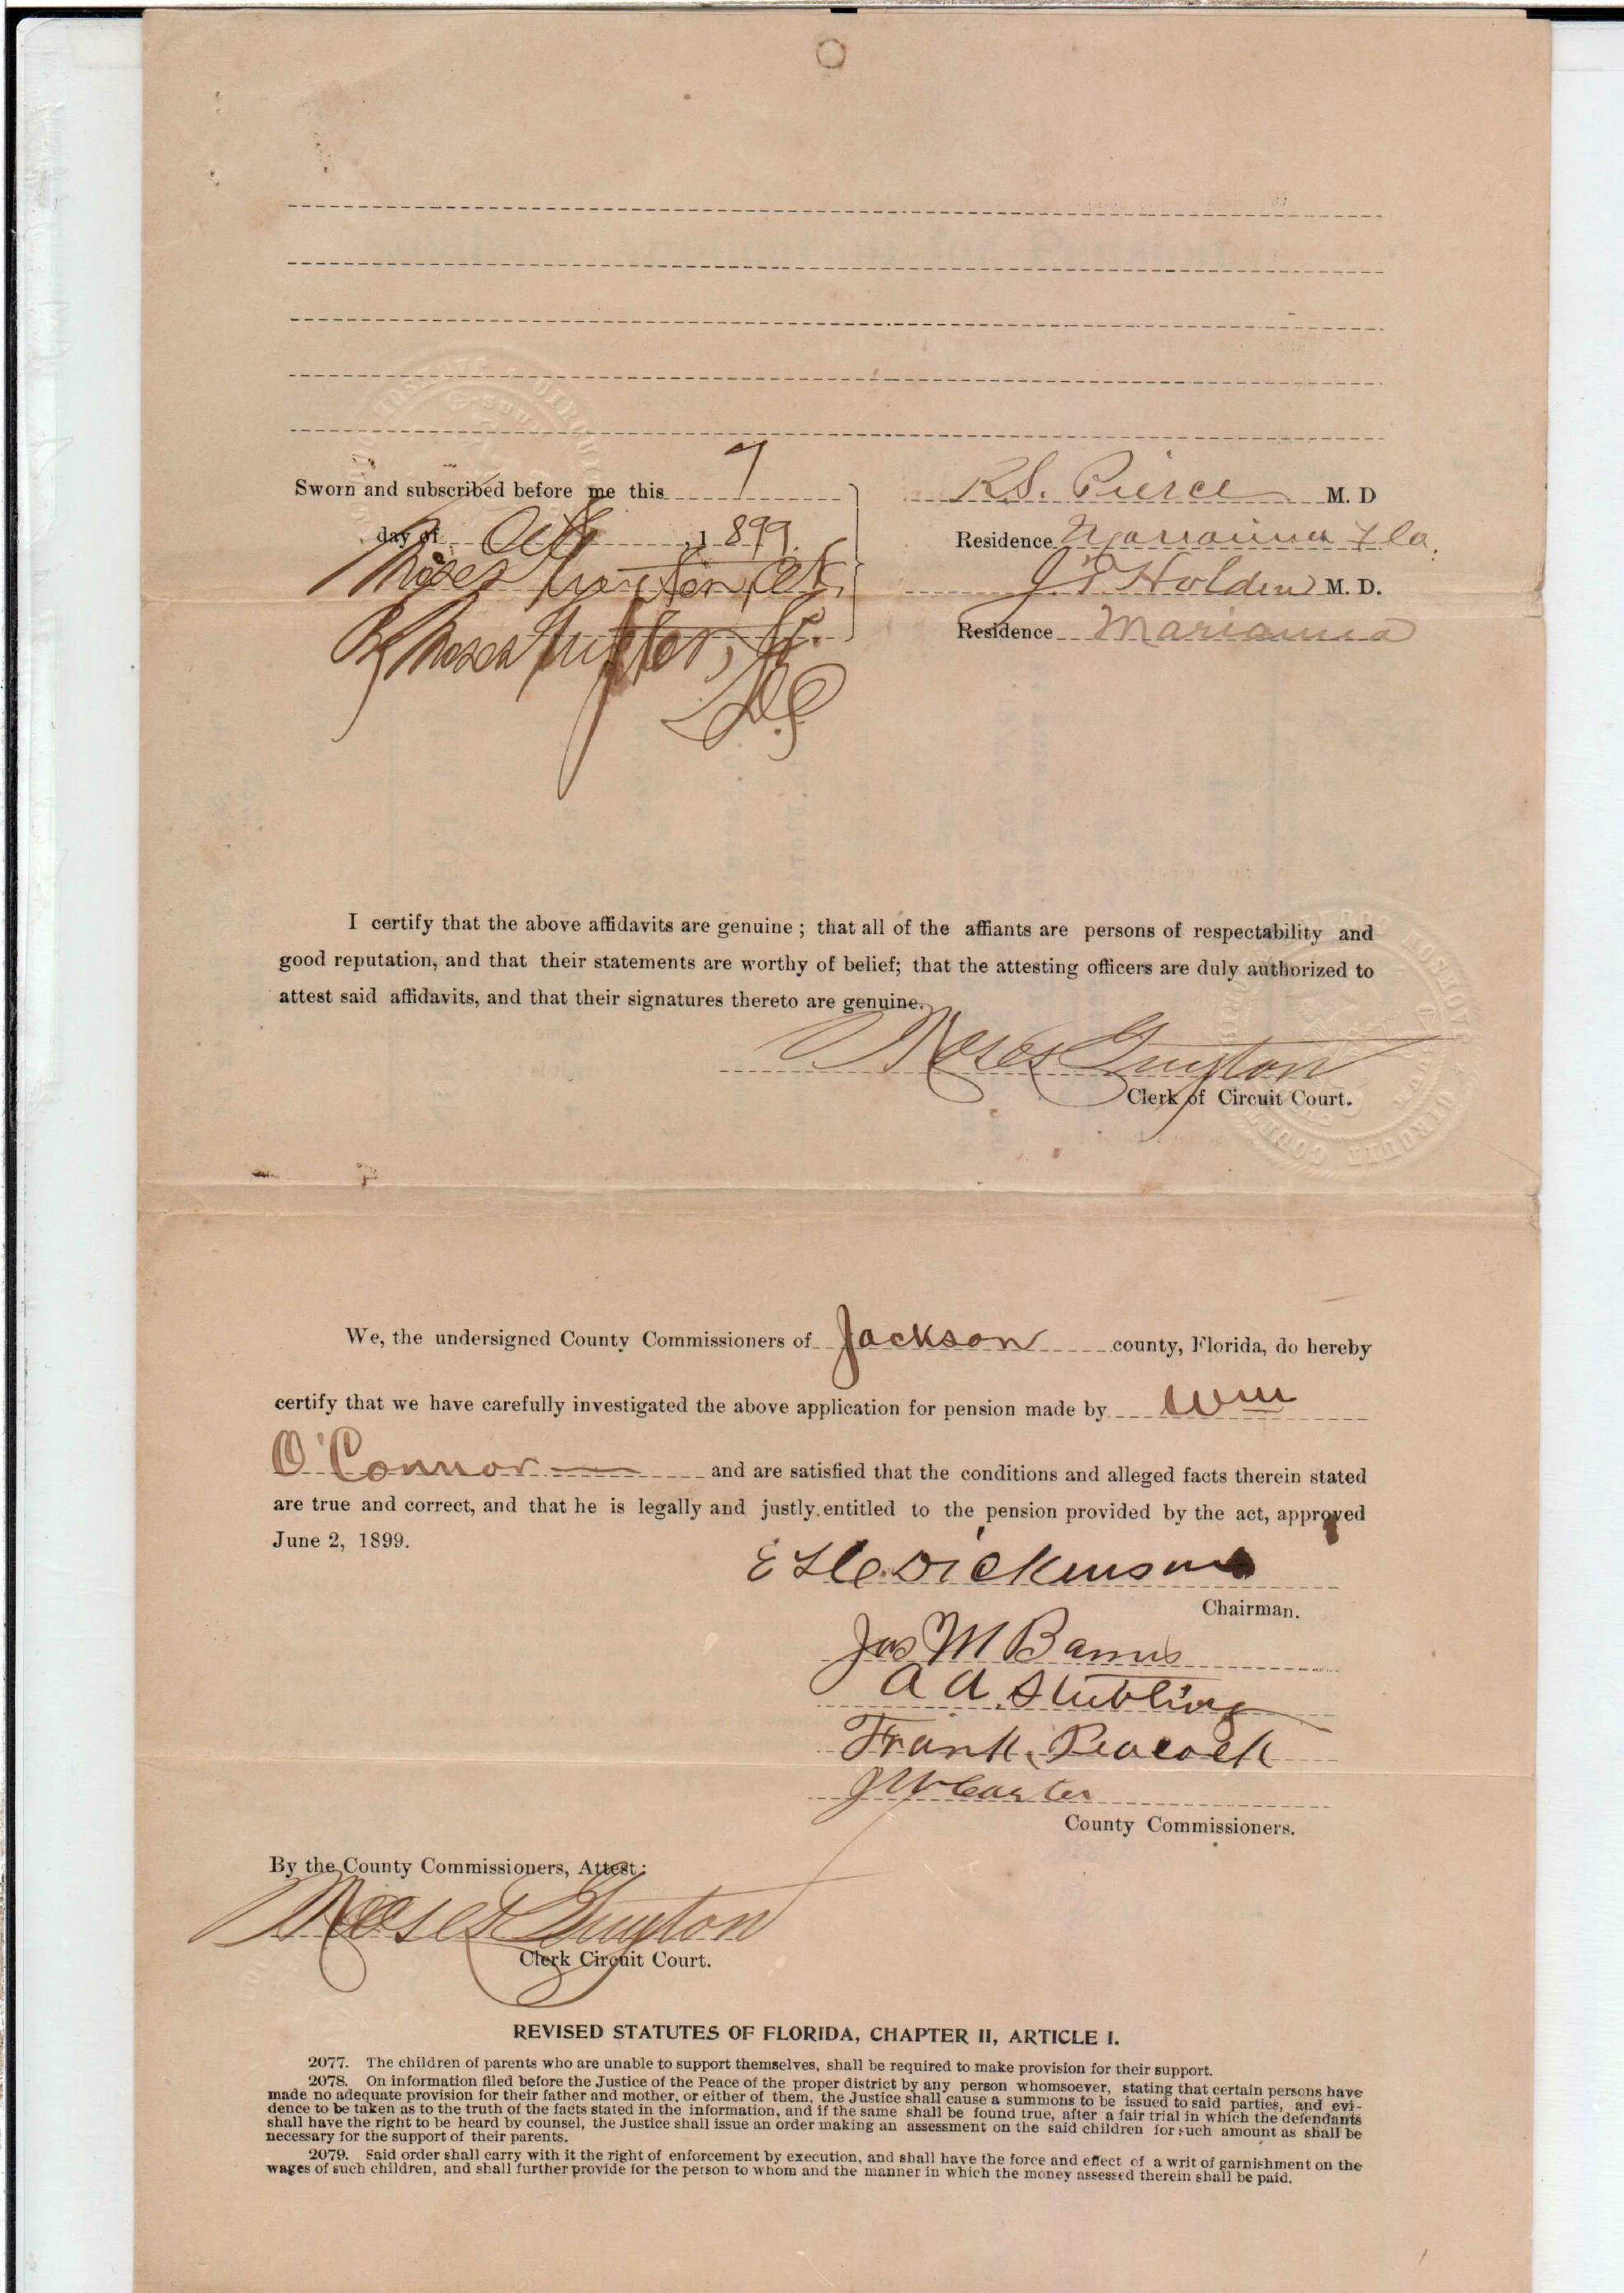 Sworn and subscribed before me this 7
day of Oct, 1899.
Moses Guyton, Clk
By Moses Guyton, Jr.
D.C.
R.S. Pierce M. D
Residence Marianna Fla.
Holden M. D.
Residence Marianna
I certify that the above affidavits are genuine; that all of the affiants are persons of respectability and
good reputation, and that their statements are worthy of belief; that the attesting officers are duly authorized to
attest said affidavits, and that their signatures thereto are genuine.
Moses Guyton
Clerk of Circuit Court.
We, the undersigned County Commissioners of Jackson county, Florida, do hereby
certify that we have carefully investigated the above application for pension made by Wm
O'Connor and are satisfied that the conditions and alleged facts therein stated
are true and correct, and that he is legally and justly entitled to the pension provided by the act, approved
June 2, 1899.
Dickinson
Chairman.
Jas M Barnes
A A Stubbling
Frank Peacock
J W Carter
County Commissioners.
By the County Commissioners, Attest:
Moses Guyton
Clerk Circuit Court.
REVISED STATUTES OF FLORIDA, CHAPTER II, ARTICLE I.
2077. The children of parents who are unable to support themselves, shall be required to make provision for their support.
2078. On information filed before the Justice of the Peace of the proper district by any person whomsoever, stating that certain persons have
made no adequate provision for their father and mother, or either of them, the Justice shall cause a summons to be issued to said parties, and evi-
dence to be taken as to the truth of the facts stated in the information, and if the same shall be found true, after a fair trial in which the defendants
shall have the right to be heard by counsel, the Justice shall issue an order making an assessment on the said children for such amount as shall be
necessary for the support of their parents.
2079. Said order shall carry with it the right of enforcement by execution, and shall have the force and effect of a writ of garnishment on the
wages of such children, and shall further provide for the person to whom and the manner in which the money assessed therein shall be paid.